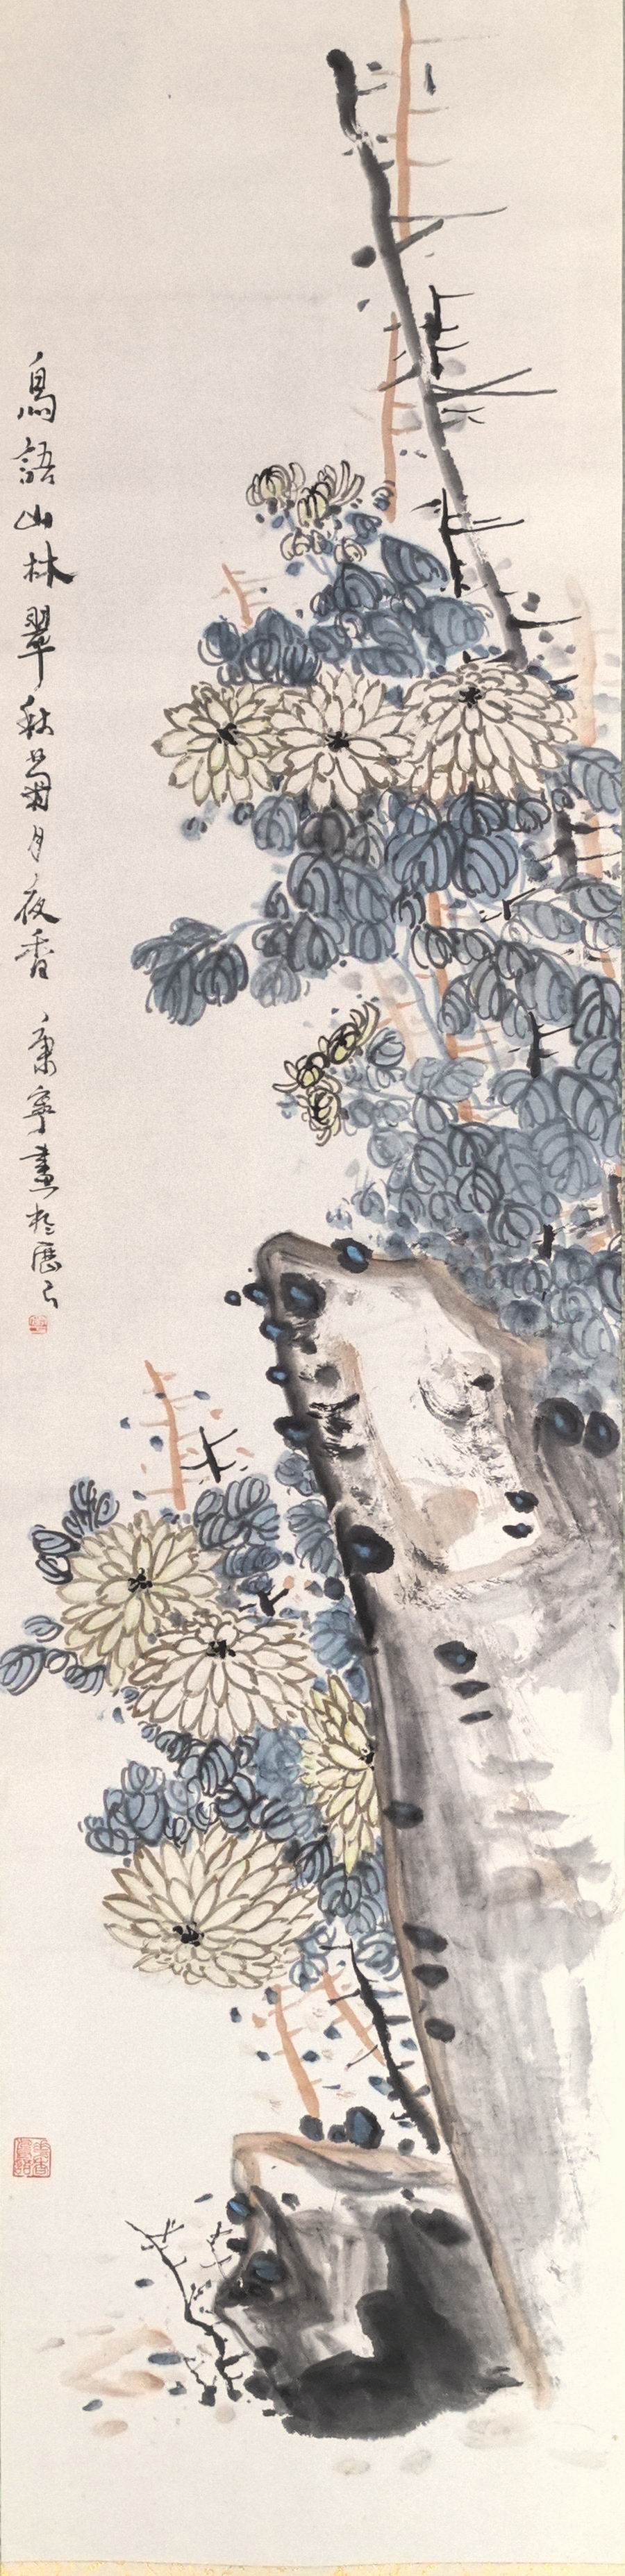 鳥語山林翠秋菊月夜香 康寧畫於歷下